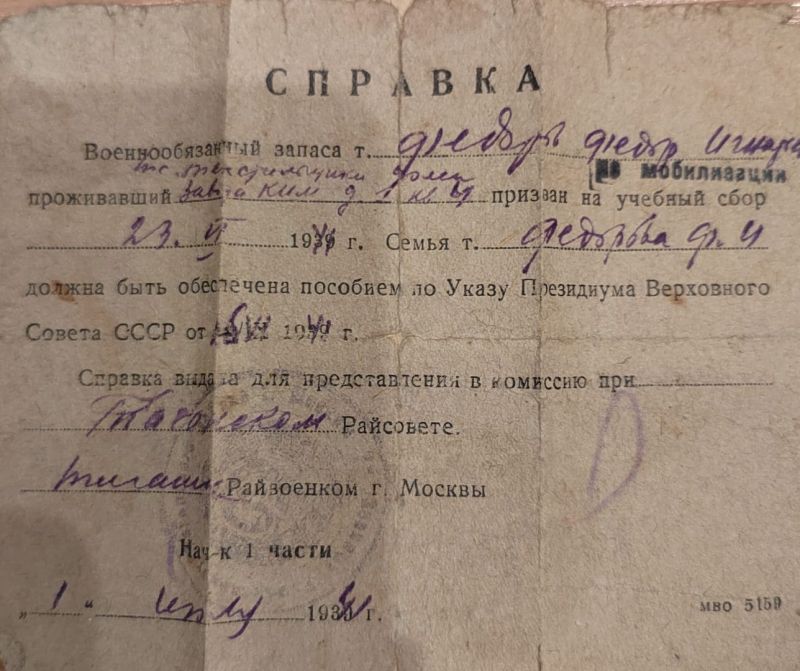 СПРАВКА
Военнообязанный запаса т. Федоров Федор
по мобилизации
проживавший завод КИМ д. 1 кв 4 призван на учебный сбор
23. VI 1941 г. Семья т. Федорова Ф. И
должна быть обеспечена пособием по Указу Президиума Верховного
Совета СССР от VI 1941 г.
Справка выдана для представления в комиссию при
Таганском Райсовете.
Райвоенком г. Москвы
Нач-к 1 части
„1" июля 1941 г.
МВО 5159